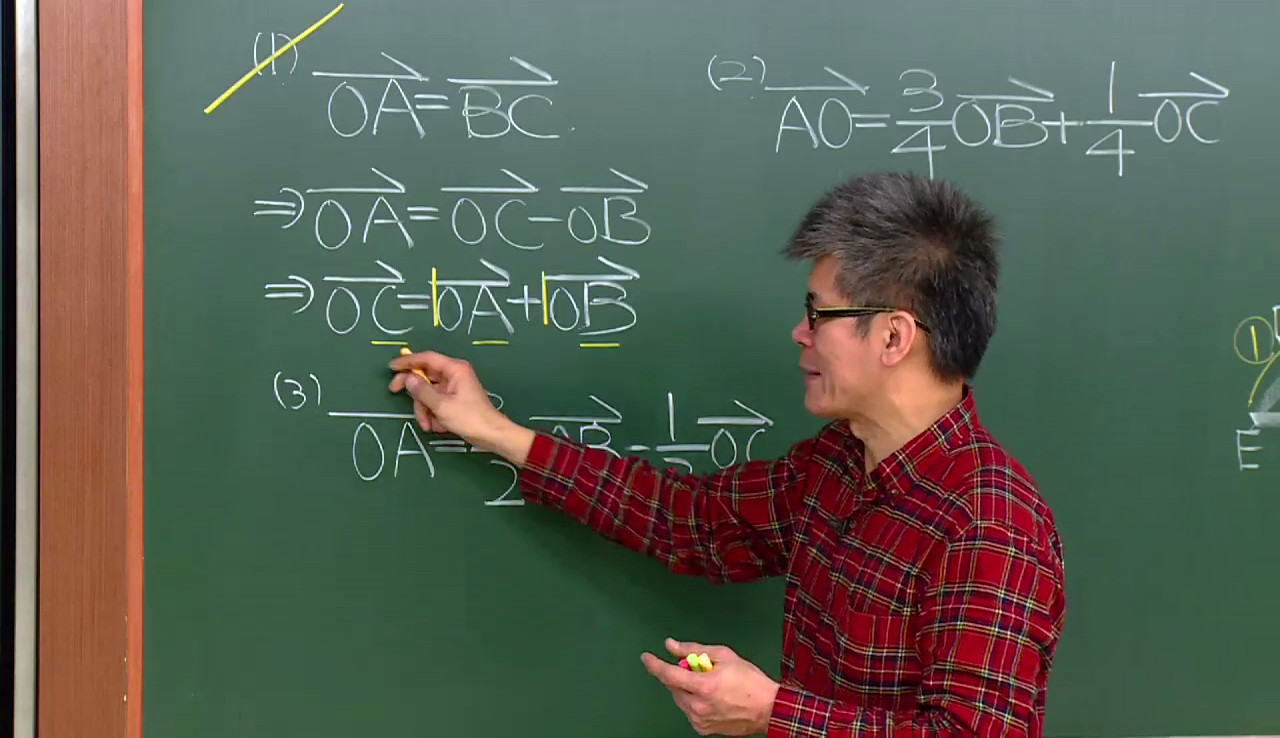 (1) OA=BC
⇒OA=OC-OB
⇒OC=OA+OB
(2) AO=3/4OB+1/4OC
(3) OA= /2 OB-1/ OC
①
E